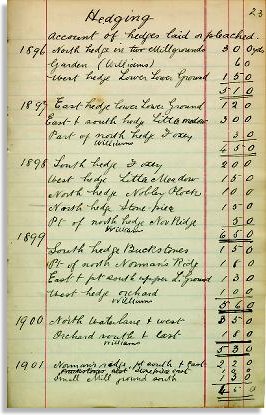 23
Hedging
Account of hedges laid or pleached.
1896 North hedge in two Mill grounds 300 yds
Garden (Williams) 60
West hedge Lower Lover Ground 150
510
1897 East hedge Lower Lover Ground 120
East & south hedge Little Meadow 300
Part of north hedge Foxey 30
Williams
450
1898 South hedge Foxey 200
West hedge Little Meadow 150
North hedge 100
North hedge Stone piece 150
Pt of north hedge Nor Ridge 50
William
650
1899
South hedge Buckstones 150
Pt of north Norman's Ridge 180
East & pt south upper L. Ground 130
West hedge orchard 100
Williams
560
1900 North Waterlane & west 350
Orchard south & east 180
Williams
530
1901 Norman's ridge, pt south & east
Small Mill ground south 130